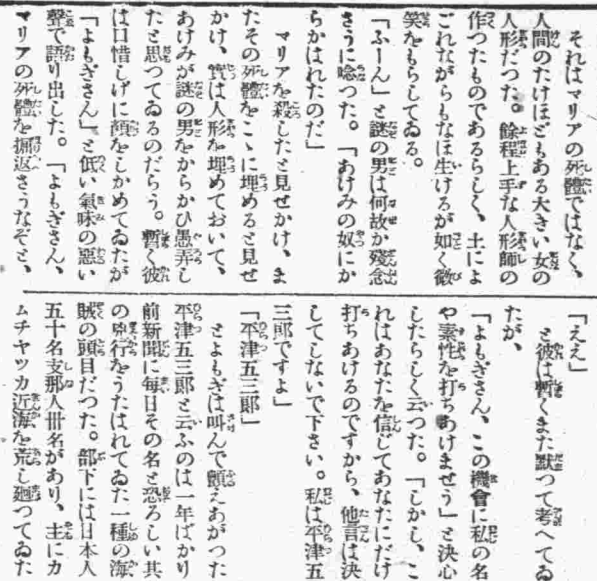 それはマリアの死體ではなく、
人間のたけほどもある大きい女の
人形だつた。餘程上手な人形師の
作つたものであるらしく、土によ
ごれながらもなほ生けるが如く微
笑をもらしてゐる。
「ふーん」と謎の男は何故か殘念
さうに唸つた。「あけみの奴にか
らかはれたのだ」
マリアを殺したと見せかけ、ま
たその死體をこゝに埋めると見せ
かけ、實は人形を埋めておいて、
あけみが謎の男をからかひ愚弄し
たと思つてゐるのだらう。暫く彼
は口惜しげに顏をしかめてゐたが
「よもぎさん」と低い氣味の惡い
聲で語り出した。「よもぎさん、
マリアの死體を掘返さうなぞと、
「ええ」
と彼は暫くまた默つて考へてゐ
たが、
「よもぎさん、この機會に私の名
や素性を打ちあけませう」と決心
したらしく云つた。「しかし、こ
れはあなたを信じてあなたにだけ
打ちあけるのですから、他言は決
してしないで下さい。私は平津五
三郎ですよ」
「平津五三郎」
とよもぎは叫んで顫えあがつた
平津五三郎と云ふのは一年ばかり
前新聞に毎日その名と恐ろしい其
の兇行をうたはれてゐた一種の海
賊の頭目だつた。部下には日本人
五十名支那人卅名があり、主にカ
ムチヤツカ近海を荒し廻つてゐた